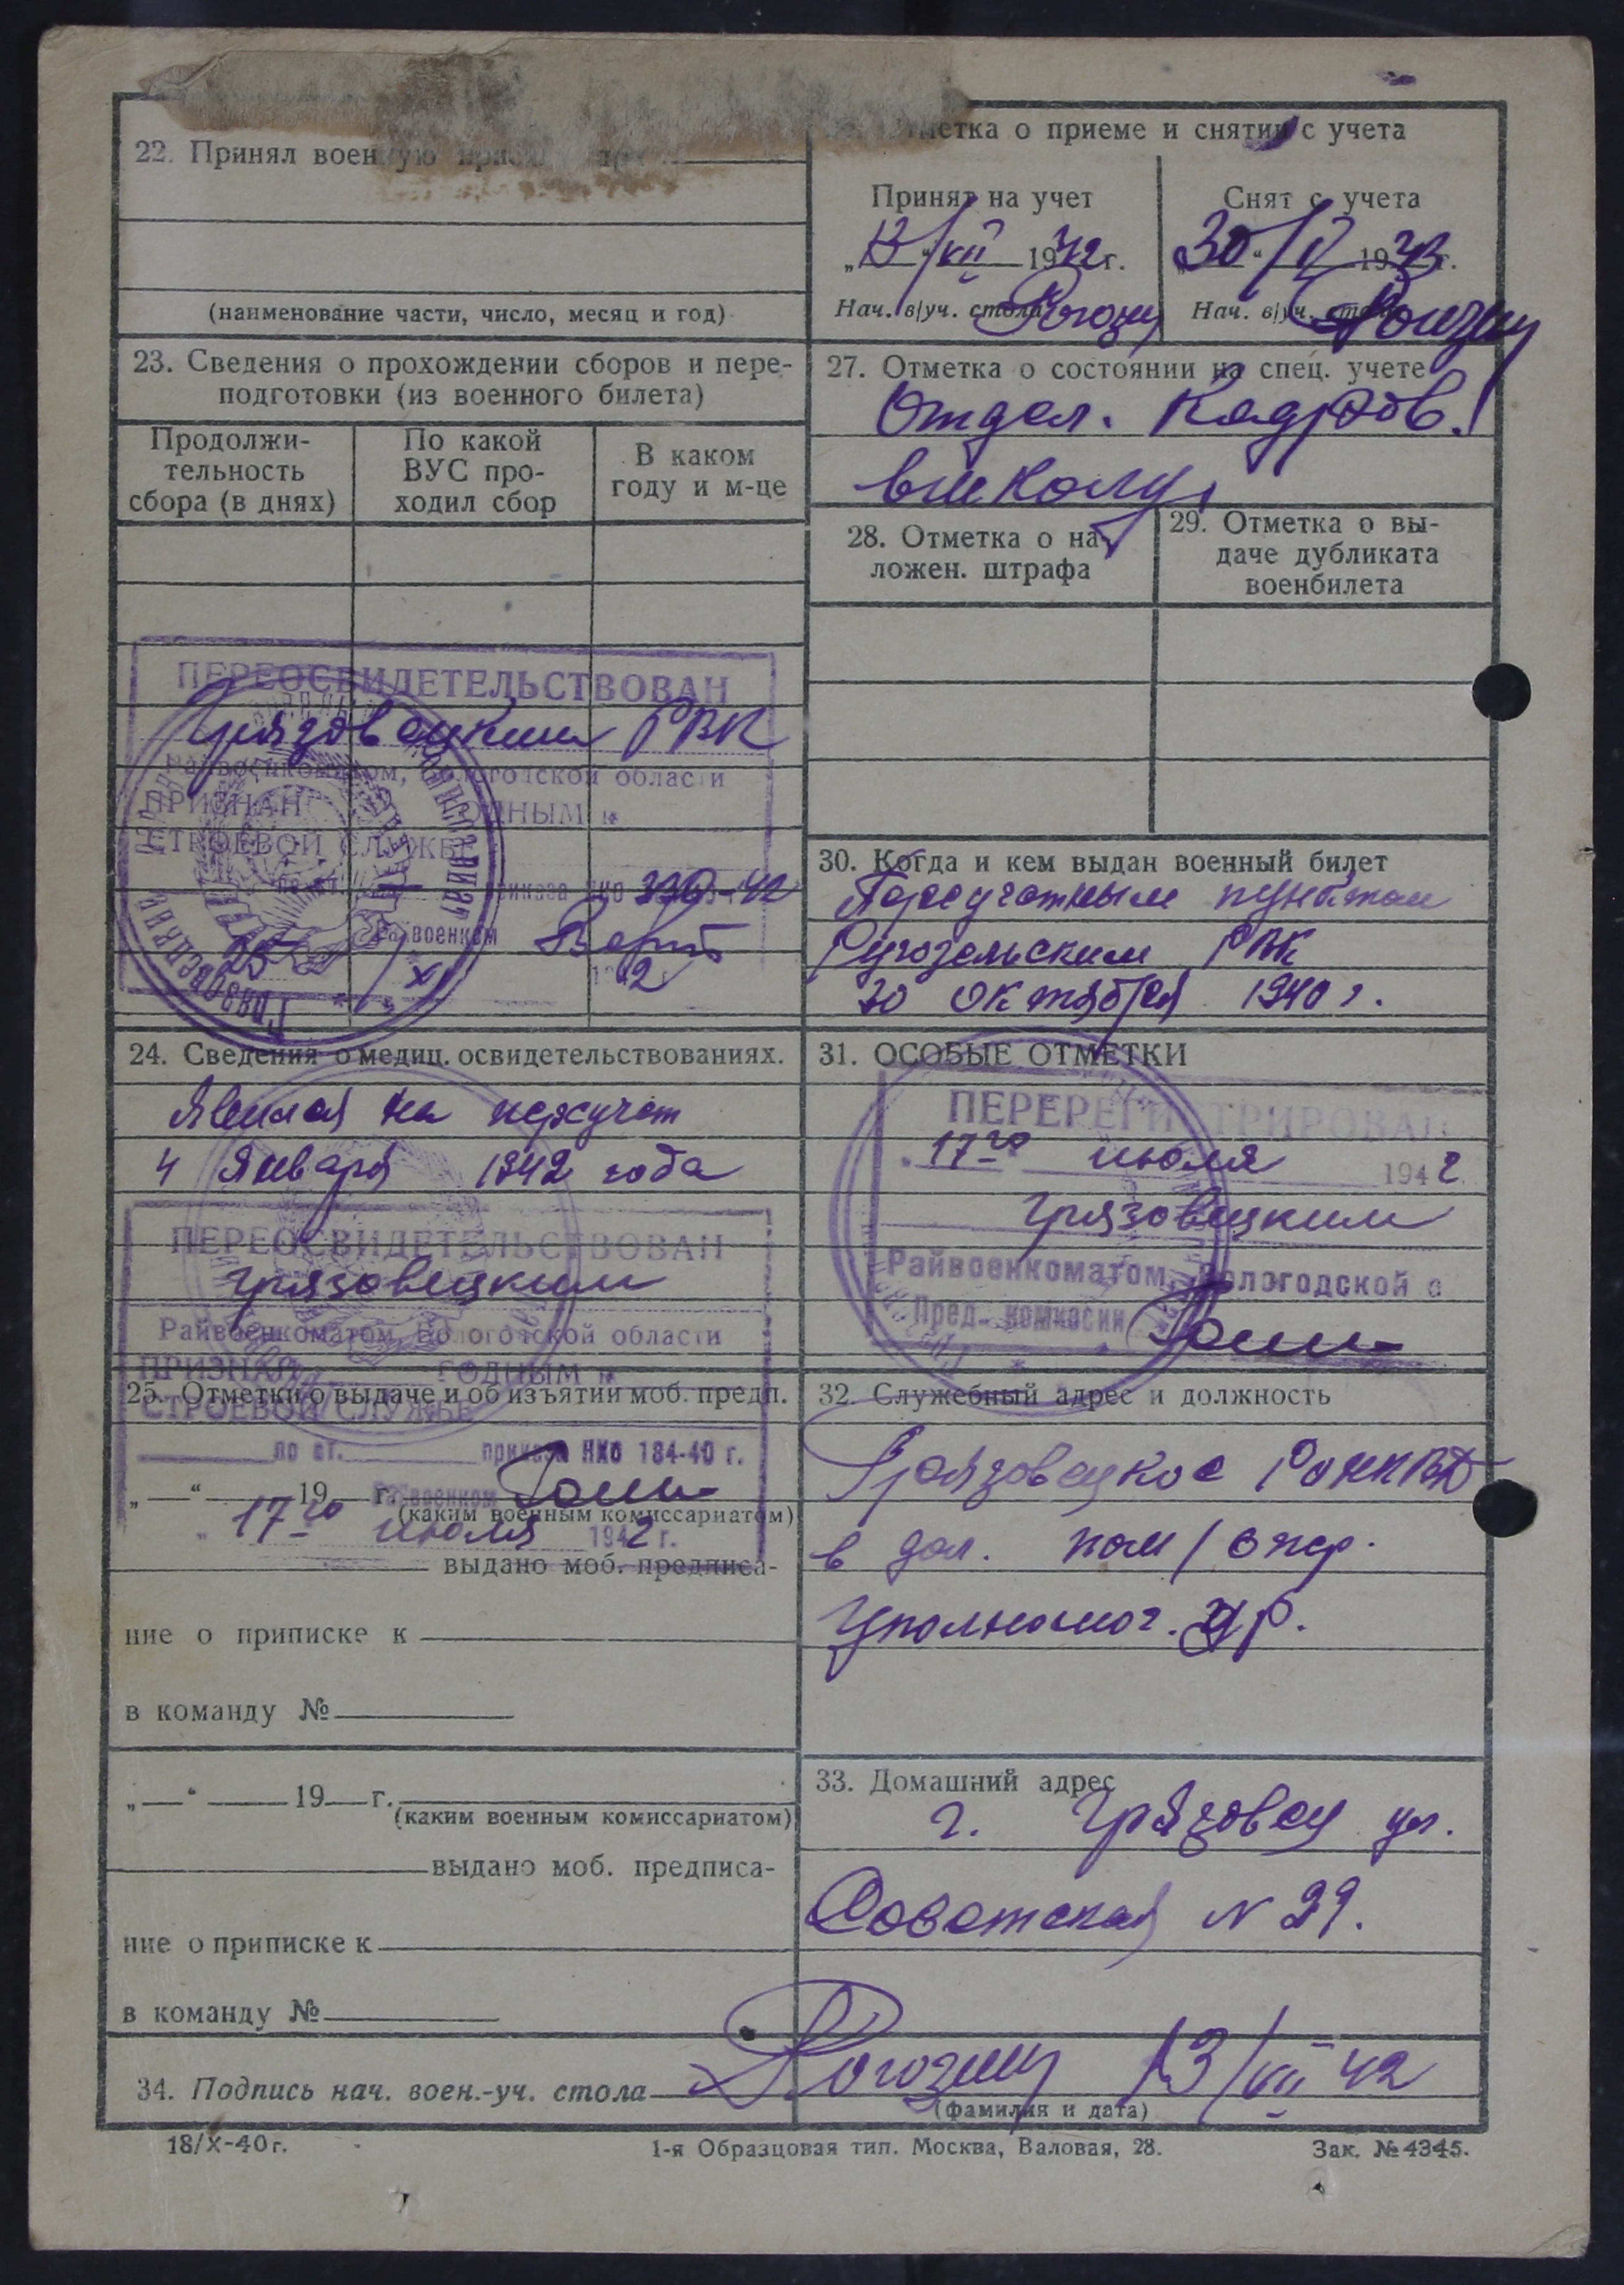 22. Принял военную
(наименование части, число, месяц и год)
23. Сведения о прохождении сборов и пере-
подготовки (из военного билета)
Продолжи-
тельность
сбора (в днях)
По какой
ВУС про-
ходил сбор
В каком
году и м-це
ПЕРЕОСВИДЕТЕЛЬСТВОВАН
Грязовецким РВК
Райвоенкоматом, Вологотской области
ПРИЗНАН ГОДНЫМ к
СТРОЕВОЙ СЛУЖБЕ
по ст. приказа НКО 336-42
Райвоенком
25 XI 1942
24. Сведения о медиц. освидетельствованиях.
Явился на переучет
4 Января 1942 года
ПЕРЕОСВИДЕТЕЛЬСТВОВАН
Грязовецким
Райвоенкоматом, Вологотской области
ПРИЗНАН ГОДНЫМ к
СТРОЕВОЙ СЛУЖБЕ
по ст. приказа НКО 184-40 г.
Райвоенком
17го июля 1942 г.
25. Отметки о выдаче и об изъятии моб. предп.
„—“ 19 г.
(каким военным комиссариатом)
выдано моб. предписа-
ние о приписке к
в команду №
„—“ 19 г.
(каким военным комиссариатом)
выдано моб. предписа-
ние о приписке к
в команду №
отметка о приеме и снятии с учета
Принят на учет
„13“/VII 1942 г.
Нач. в/уч. стола Рогозин
Снят с учета
30“/V 1943 г.
Нач. в/уч. стола Рогозин
27. Отметка о состоянии на спец. учете
Отдел. Кадров.
в школу
28. Отметка о на-
ложен. штрафа
29. Отметка о вы-
даче дубликата
военбилета
30. Когда и кем выдан военный билет
Переучетным пунктом
Ругозельским РВК
30 октября 1940 г.
31. ОСОБЫЕ ОТМЕТКИ
ПЕРЕРЕГИСТРИРОВАН
17го июля 1942
Грязовецким
Райвоенкоматом, Вологодской о
Пред. комиссии
32. Служебный адрес и должность
Грязовецкое РОНКВД
в дол. пом/опер.
Уполномоч. УР.
33. Домашний адрес
г. Грязовец ул.
Советская N 29.
34. Подпись нач. воен.-уч. стола Рогозин 13/VII 42
(фамилия и дата)
18/X-40 г. 1-я Образцовая тип. Москва, Валовая, 28. Зак. № 4345.